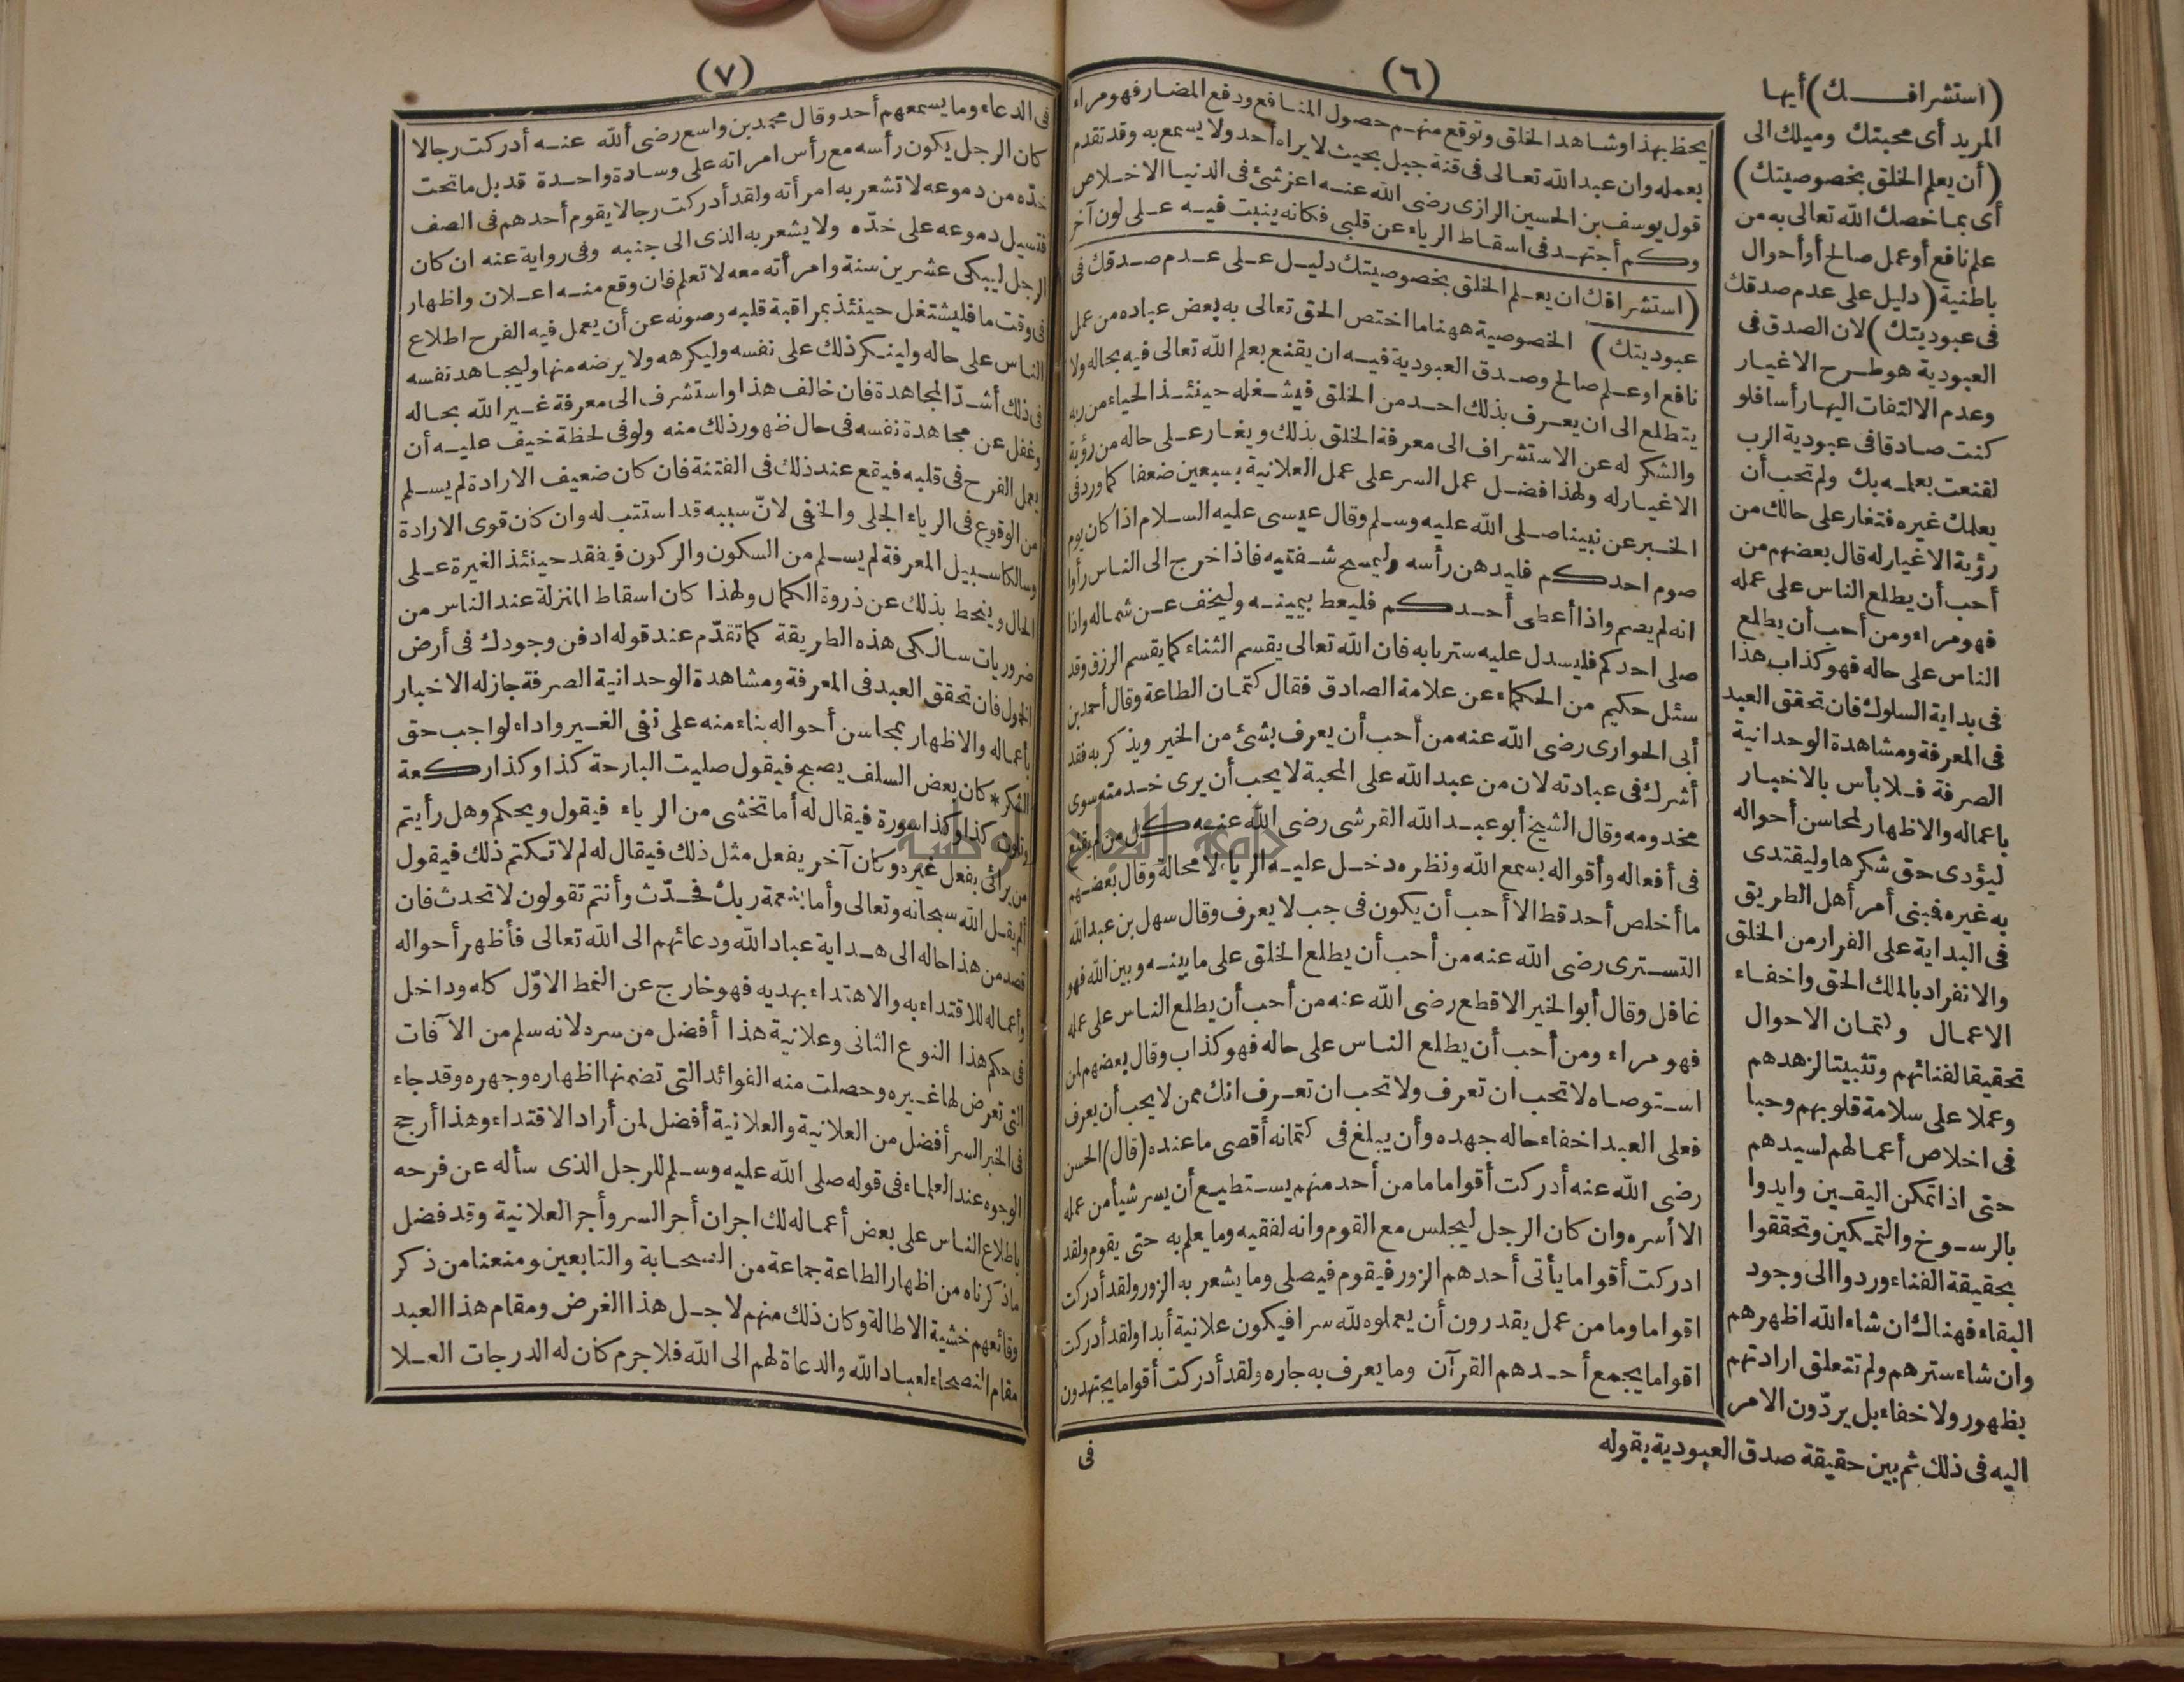 (٦)
يحظ بهذا وشاهد الخلق وتوقع منهم حصول المنافع ودفع المضار فهو مراء
بعمله وان عبد الله تعالى فى قنة جبل بحيث لا يراه أحد ولا يسمع به وقد تقدم
قول يوسف بن الحسين الرازى رضى الله عنه اعز شئ فى الدنيا الاخلاص
وكم أجتهد فى اسقاط الرياء عن قلبى فكانه ينبت فيه على لون آخر
(استشرافك ان يعلم الخلق بخصوصيتك دليل على عدم صدقك فى
عبوديتك) الخصوصية ههنا ما اختص الحق تعالى به بعض عباده من عمل
نافع او علم صالح وصدق العبودية فيه ان يقنع بعلم الله تعالى فيه بحاله ولا
يتطلع الى ان يعرف بذلك احد من الخلق فيشغله حينئذ الحياء من ربه
والشكر له عن الاستشراف الى معرفة الخلق بذلك ويغار على حاله من رؤية
الاغيار له ولهذا فضل عمل السر على عمل العلانية بسبعين ضعفا كما ورد فى
الخبر عن نبينا صلى الله عليه وسلم وقال عيسى عليه السلام اذا كان يوم
صوم احدكم فليدهن رأسه وليمسح شفتيه فاذا خرج الى الناس رأوا
انه لم يصم واذا أعطى أحدكم فليعط بيمينه وليخف عن شماله واذا
صلى احدكم فليسدل عليه ستر بابه فان الله تعالى يقسم الثناء كما يقسم الرزق وقد
سئل حكيم من الحكماء عن علامة الصادق فقال كتمان الطاعة وقال أحمد بن
أبى الحوارى رضى الله عنه من أحب أن يعرف بشئ من الخير ويذكر به فقد
أشرك فى عبادته لان من عبد الله على المحبة لا يحب أن يرى خدمته سوى
مخدومه وقال الشيخ أبو عبد الله القرشى رضى الله عنه كل من لم يقنع
فى أفعاله وأقواله بسمع الله ونظره دخل عليه الرياء لا محالة وقال بعضهم
ما أخلص أحد قط الا أحب أن يكون فى جب لا يعرف وقال سهل بن عبد الله
التسترى رضى الله عنه من أحب أن يطلع الخلق على ما بينه وبين الله فهو
غافل وقال أبو الخير الاقطع رضى الله عنه من أحب أن يطلع الناس على عمله
فهو مراء ومن أحب أن يطلع الناس على حاله فهو كذاب وقال بعضهم لمن
استوصاه لا تحب ان تعرف ولا تحب ان تعرف انك ممن لا يحب أن يعرف
فعلى العبد اخفاء حاله جهده وأن يبلغ فى كتمانه أقصى ما عنده (قال) الحسن
رضى الله عنه أدركت أقواما ما من أحد منهم يستطيع أن يسر شيأ من عمله
الا أسره وان كان الرجل ليجلس مع القوم وانه لفقيه وما يعلم به حتى يقوم ولقد
ادركت أقواما يأتى أحدهم الزور فيقوم فيصلى وما يشعر به الزور ولقد أدركت
اقواما وما من عمل يقدرون أن يعملوه لله سرا فيكون علانية أبدا ولقد أدركت
اقواما يجمع أحدهم القرآن وما يعرف به جاره ولقد أدركت أقواما يجتهدون
فى
(استشرافك) أيها
المريد أى محبتك وميلك الى
(أن يعلم الخلق بخصوصيتك)
أى بما خصك الله تعالى به من
علم نافع أو عمل صالح أو أحوال
باطنية (دليل على عدم صدقك
فى عبوديتك) لان الصدق فى
العبودية هو طرح الاغيار
وعدم الالتفات اليها رأسا فلو
كنت صادقا فى عبودية الرب
لقنعت بعلمه بك ولم تحب أن
يعلمك غيره فتغار على حالك من
رؤية الاغيار له قال بعضهم من
أحب أن يطلع الناس على عمله
فهو مراء ومن أحب أن يطلع
الناس على حاله فهو كذاب هذا
فى بداية السلوك فان تحقق العبد
فى المعرفة ومشاهدة الوحدانية
الصرفة فلا بأس بالاخبار
باعماله والاظهار لمحاسن أحواله
ليؤدى حق شكرها وليقتدى
به غيره فبنى أمر أهل الطريق
فى البداية على الفرار من الخلق
والانفراد بالملك الحق واخفاء
الاعمال وكتمان الاحوال
تحقيقا لفنائهم وتثبيتا لزهدهم
وعملا على سلامة قلوبهم وحبا
فى اخلاص أعمالهم لسيدهم
حتى اذا تمكن اليقين وايدوا
بالرسوخ والتمكين وتحققوا
بحقيقة الفناء وردوا الى وجود
البقاء فهناك ان شاء الله اظهرهم
وان شاء سترهم ولم تتعلق ارادتهم
بظهور ولا خفاء بل يردّون الامر
اليه فى ذلك ثم بين حقيقة صدق العبودية بقوله
(٧)
فى الدعاء وما يسمعهم أحد وقال محمد بن واسع رضى الله عنه أدركت رجالا
كان الرجل يكون رأسه مع رأس امراته على وسادة واحدة قد بل ما تحت
خدّه من دموعه لا تشعر به امرأته ولقد أدركت رجالا يقوم أحدهم فى الصف
فتسيل دموعه على خدّه ولا يشعر به الذى الى جنبه وفى رواية عنه ان كان
الرجل ليبكى عشرين سنة وامرأته معه لا تعلم فان وقع منه اعلان واظهار
فى وقت ما فليشتغل حينئذ بمراقبة قلبه وصونه عن أن يعمل فيه الفرح اطلاع
الناس على حاله ولينكر ذلك على نفسه وليكرهه ولا يرضه منها وليجاهد نفسه
فى ذلك أشدّ المجاهدة فان خالف هذا واستشرف الى معرفة غير الله بحاله
وغفل عن مجاهدة نفسه فى حال ظهور ذلك منه ولو فى لحظة خيف عليه أن
يعمل الفرح فى قلبه فيقع عند ذلك فى الفتنة فان كان ضعيف الارادة لم يسلم
من الوقوع فى الرياء الجلى والخفى لانّ سببه قد استتب له وان كان قوى الارادة
وسالكا سبيل المعرفة لم يسلم من السكون والركون فيفقد حينئذ الغيرة على
الحال وينحط بذلك عن ذروة الكمال ولهذا كان اسقاط المنزلة عند الناس من
ضروريات سالكى هذه الطريقة كما تقدّم عند قوله ادفن وجودك فى أرض
الخمول فان تحقق العبد فى المعرفة ومشاهدة الوحدانية الصرفة جاز له الاخبار
بأعماله والاظهار بمحاسن أحواله بناء منه على نفى الغير واداء لواجب حق
الشكر * كان بعض السلف يصبح فيقول صليت البارحة كذا وكذا ركعة
وتلوت كذا وكذا سورة فيقال له أما تخشى من الرياء فيقول ويحكم وهل رأيتم
من يرائى بفعل غيره وكان آخر يفعل مثل ذلك فيقال له لم لا تكتم ذلك فيقول
ألم يقل الله سبحانه وتعالى وأما بنعمة ربك فحدّث وأنتم تقولون لا تحدث فان
قصد من هذا حاله الى هداية عباد الله ودعائهم الى الله تعالى فأظهر أحواله
وأعماله للاقتداء به والاهتداء بهديه فهو خارج عن النمط الاوّل كله وداخل
فى حكم هذا النوع الثانى وعلانية هذا أفضل من سره لانه سلم من الآفات
التى تعرض لها غيره وحصلت منه الفوائد التى تضمنها اظهاره وجهره وقد جاء
فى الخبر السر أفضل من العلانية والعلانية أفضل لمن أراد الاقتداء وهذا أرجح
الوجوه عند العلماء فى قوله صلى الله عليه وسلم للرجل الذى سأله عن فرحه
باطلاع الناس على بعض أعماله لك اجران أجر السر وأجر العلانية وقد فضل
ما ذكرناه من اظهار الطاعة جماعة من الصحابة والتابعين ومنعنا من ذكر
وقائعهم خشية الاطالة وكان ذلك منهم لاجل هذا الغرض ومقام هذا العبد
مقام النصحاء لعباد الله والدعاة لهم الى الله فلا جرم كان له الدرجات العلا